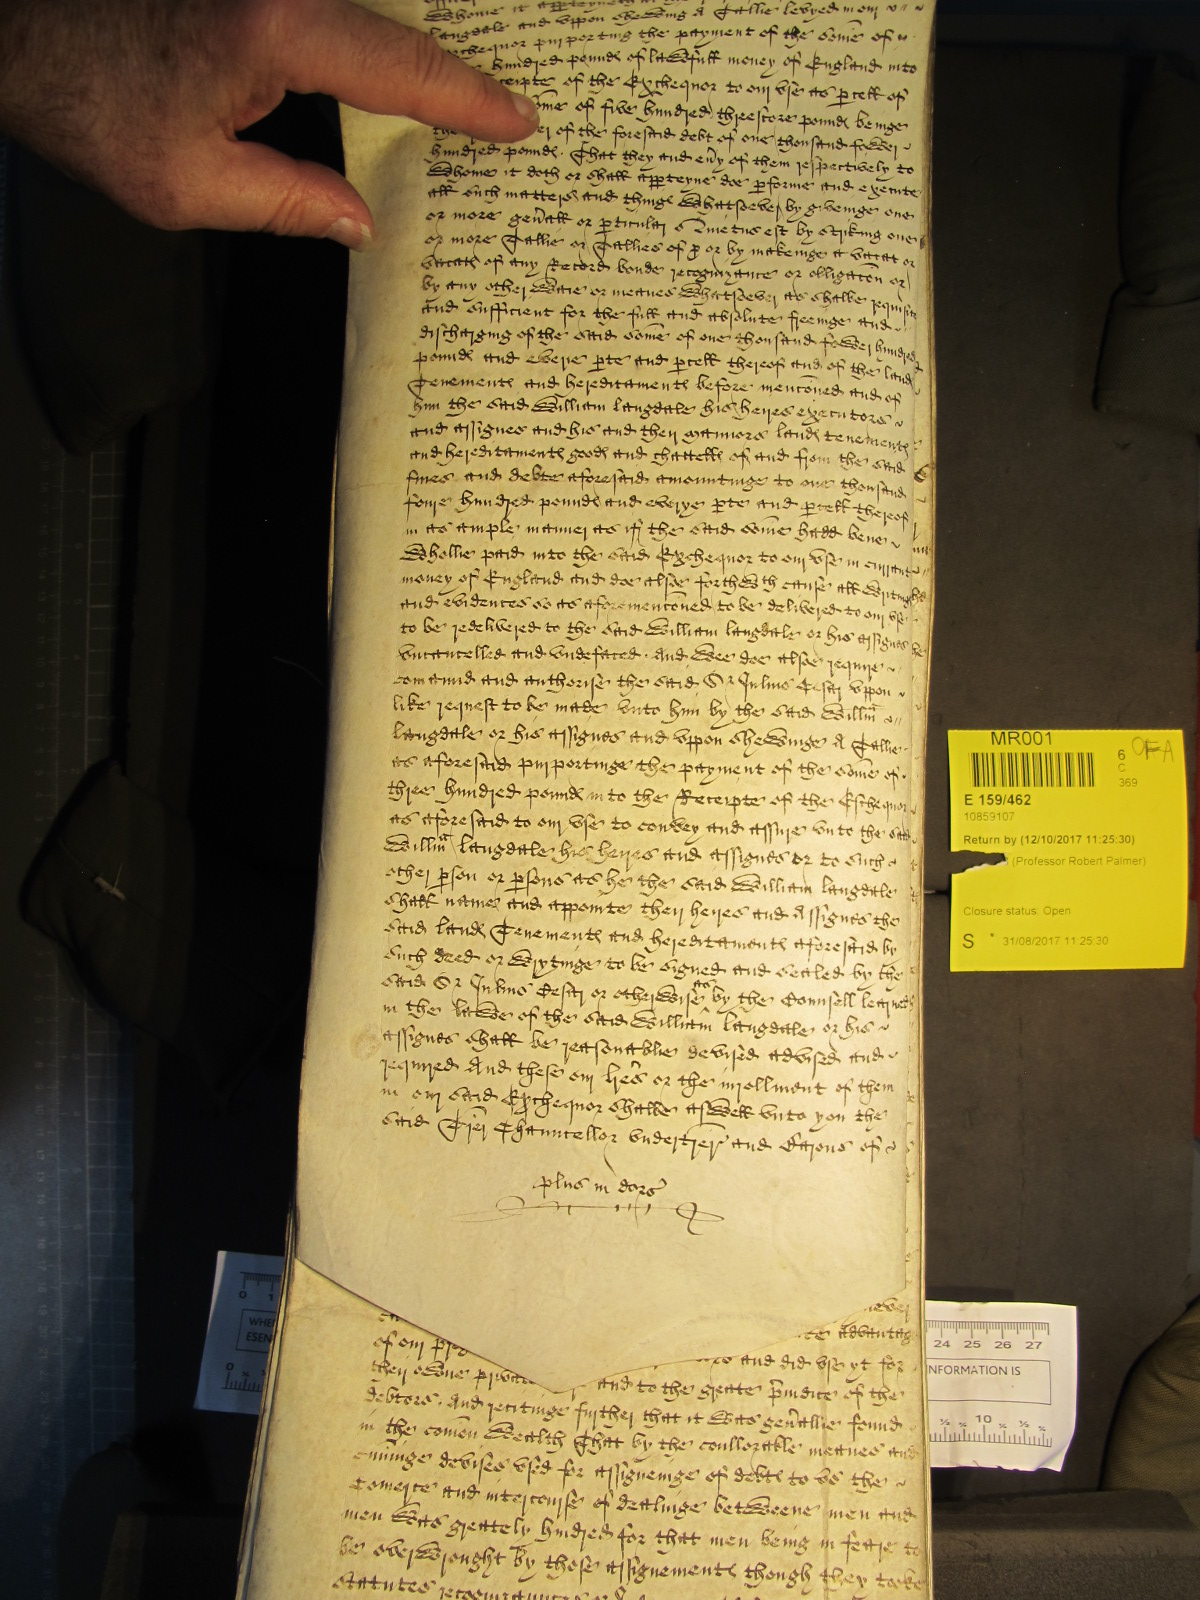 Whome it apperteyneth
Langdale and vppon shewing A Tallie levyed in
Exchequor purporting the payment of the Some of
hundred pound of lawfull money of England into
Receipte of the Exchequor to our vse as pcell of
Some of five hundred threescore pound beinge
the of the foresaid debt of one thousand fower
hundred pound. That they and evy of them respectively to
Whome it doth or shall apperteyne doe pforme and execute
all such matters and thinge Whatsoever by giveinge one
or more genall or pticular Quietus est by striking one
or more Tallie or Tallies of p or by makeinge a vacat or
vacate of any Record bonde recognizance or obligacon or
by any other Waie or meanes Whatsoever as shalbe requisite
and sufficient for the full and absolute freeinge and
discharging of the said some of one thousand fower hundred
pound and everie pte and pcell thereof and of the land
Tenement and hereditament before menconed and of
him the said William Langdale his heires executors
and assignes and his and their mannors land tenement
and hereditament good and chattell of and from the said
fines and debte aforesaid amountinge to one thousand
foure hundred pound and everye pte and pcell thereof
in as ample manner as if the said some hadd bene
Whollie paid into the said Exchequor to our vse in currant
money of England and doe alsoe forthwth cause all Writing
and evidences so as aforemenconed to be delivered to our vse
to be redelivered to the said William Langdale or his assignes
vncancelled and vndefaced. And Wee doe alsoe require
comaund and authorise the said Sr Julius Cesar vppon
like request to be made vnto him by the said Willm
Langdale or his assignes and vppon shewinge A Tallie
as aforesaid purportinge the payment of the some of
three hundred pound into the Receipte of the Exchequor
as aforesaid to our vse to convey and assure vnto the said
Willm Langdale his heires and assignes or to such
other pson or psons as he the said William Langdale
shall name and appointe their heires and Assignes the
said land Tenement and hereditament aforesaid by
such deed or Wrytinge to be signed and sealed by the
said Sr Julius Cesar or otherwise as by the Counsell learned
in the lawe of the said William Langdale or his
assignes shall be reasonablie devised advised and
required And these our lres or the inrollment of them
in our said Exchequor shalbe aswell vnto you the
said Trer Chauncellor vndertrer and Barons of
plus in dors
advantage
of our and did vse yt for
their owne private and to the greate piudice of the
debtors. And reciting further that it Was genallie found
in the comon Wealth That by the coullorable meanes and
cuninge devises vsed for assigneinge of debt to vs the
Comerce and intercourse of dealinge betweene men and
men Was greately hindred for that men being in feare to
be overwrought by those assignement though they tooke
statutes recognizances or
MR001
6
C
369
E 159/462
10859107
Return by (12/10/2017 11:25:30)
(Professor Robert Palmer)
Closure status: Open
S
31/08/2017 11:25:30
0 1
WHE
ESEN
0
24 25 26 27
INFORMATION IS
10